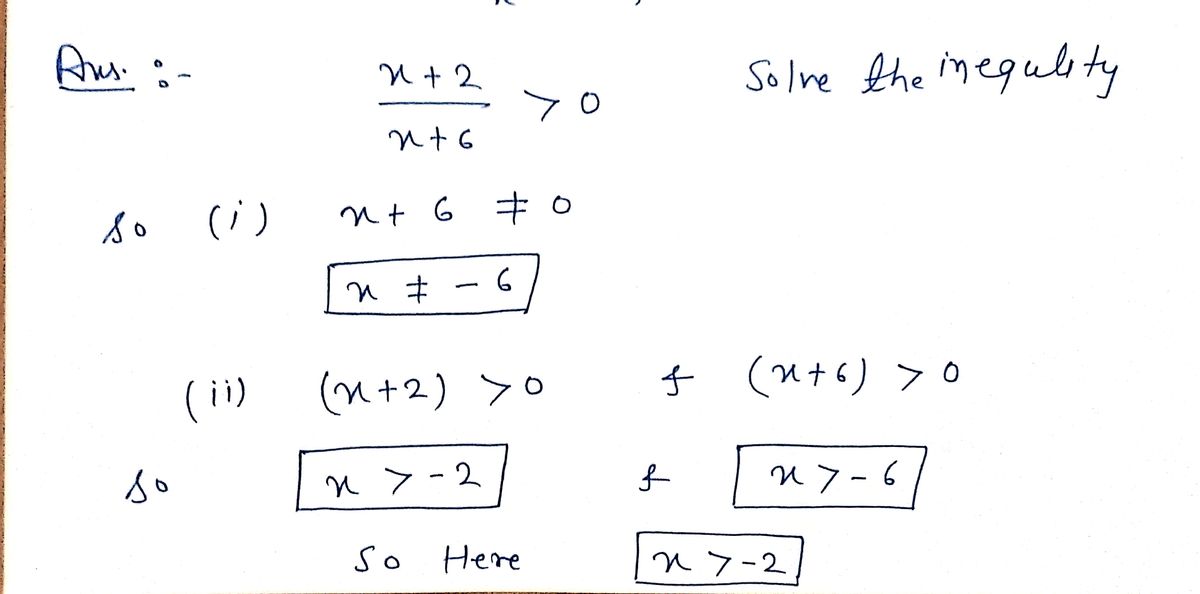 Ans. :-
x + 2 / x + 6 > 0    Solve the inequlity
so (i) x + 6 ≠ 0
x ≠ - 6
(ii) (x+2) > 0 & (x+6) > 0
so x > -2 & x > -6
So Here x > -2